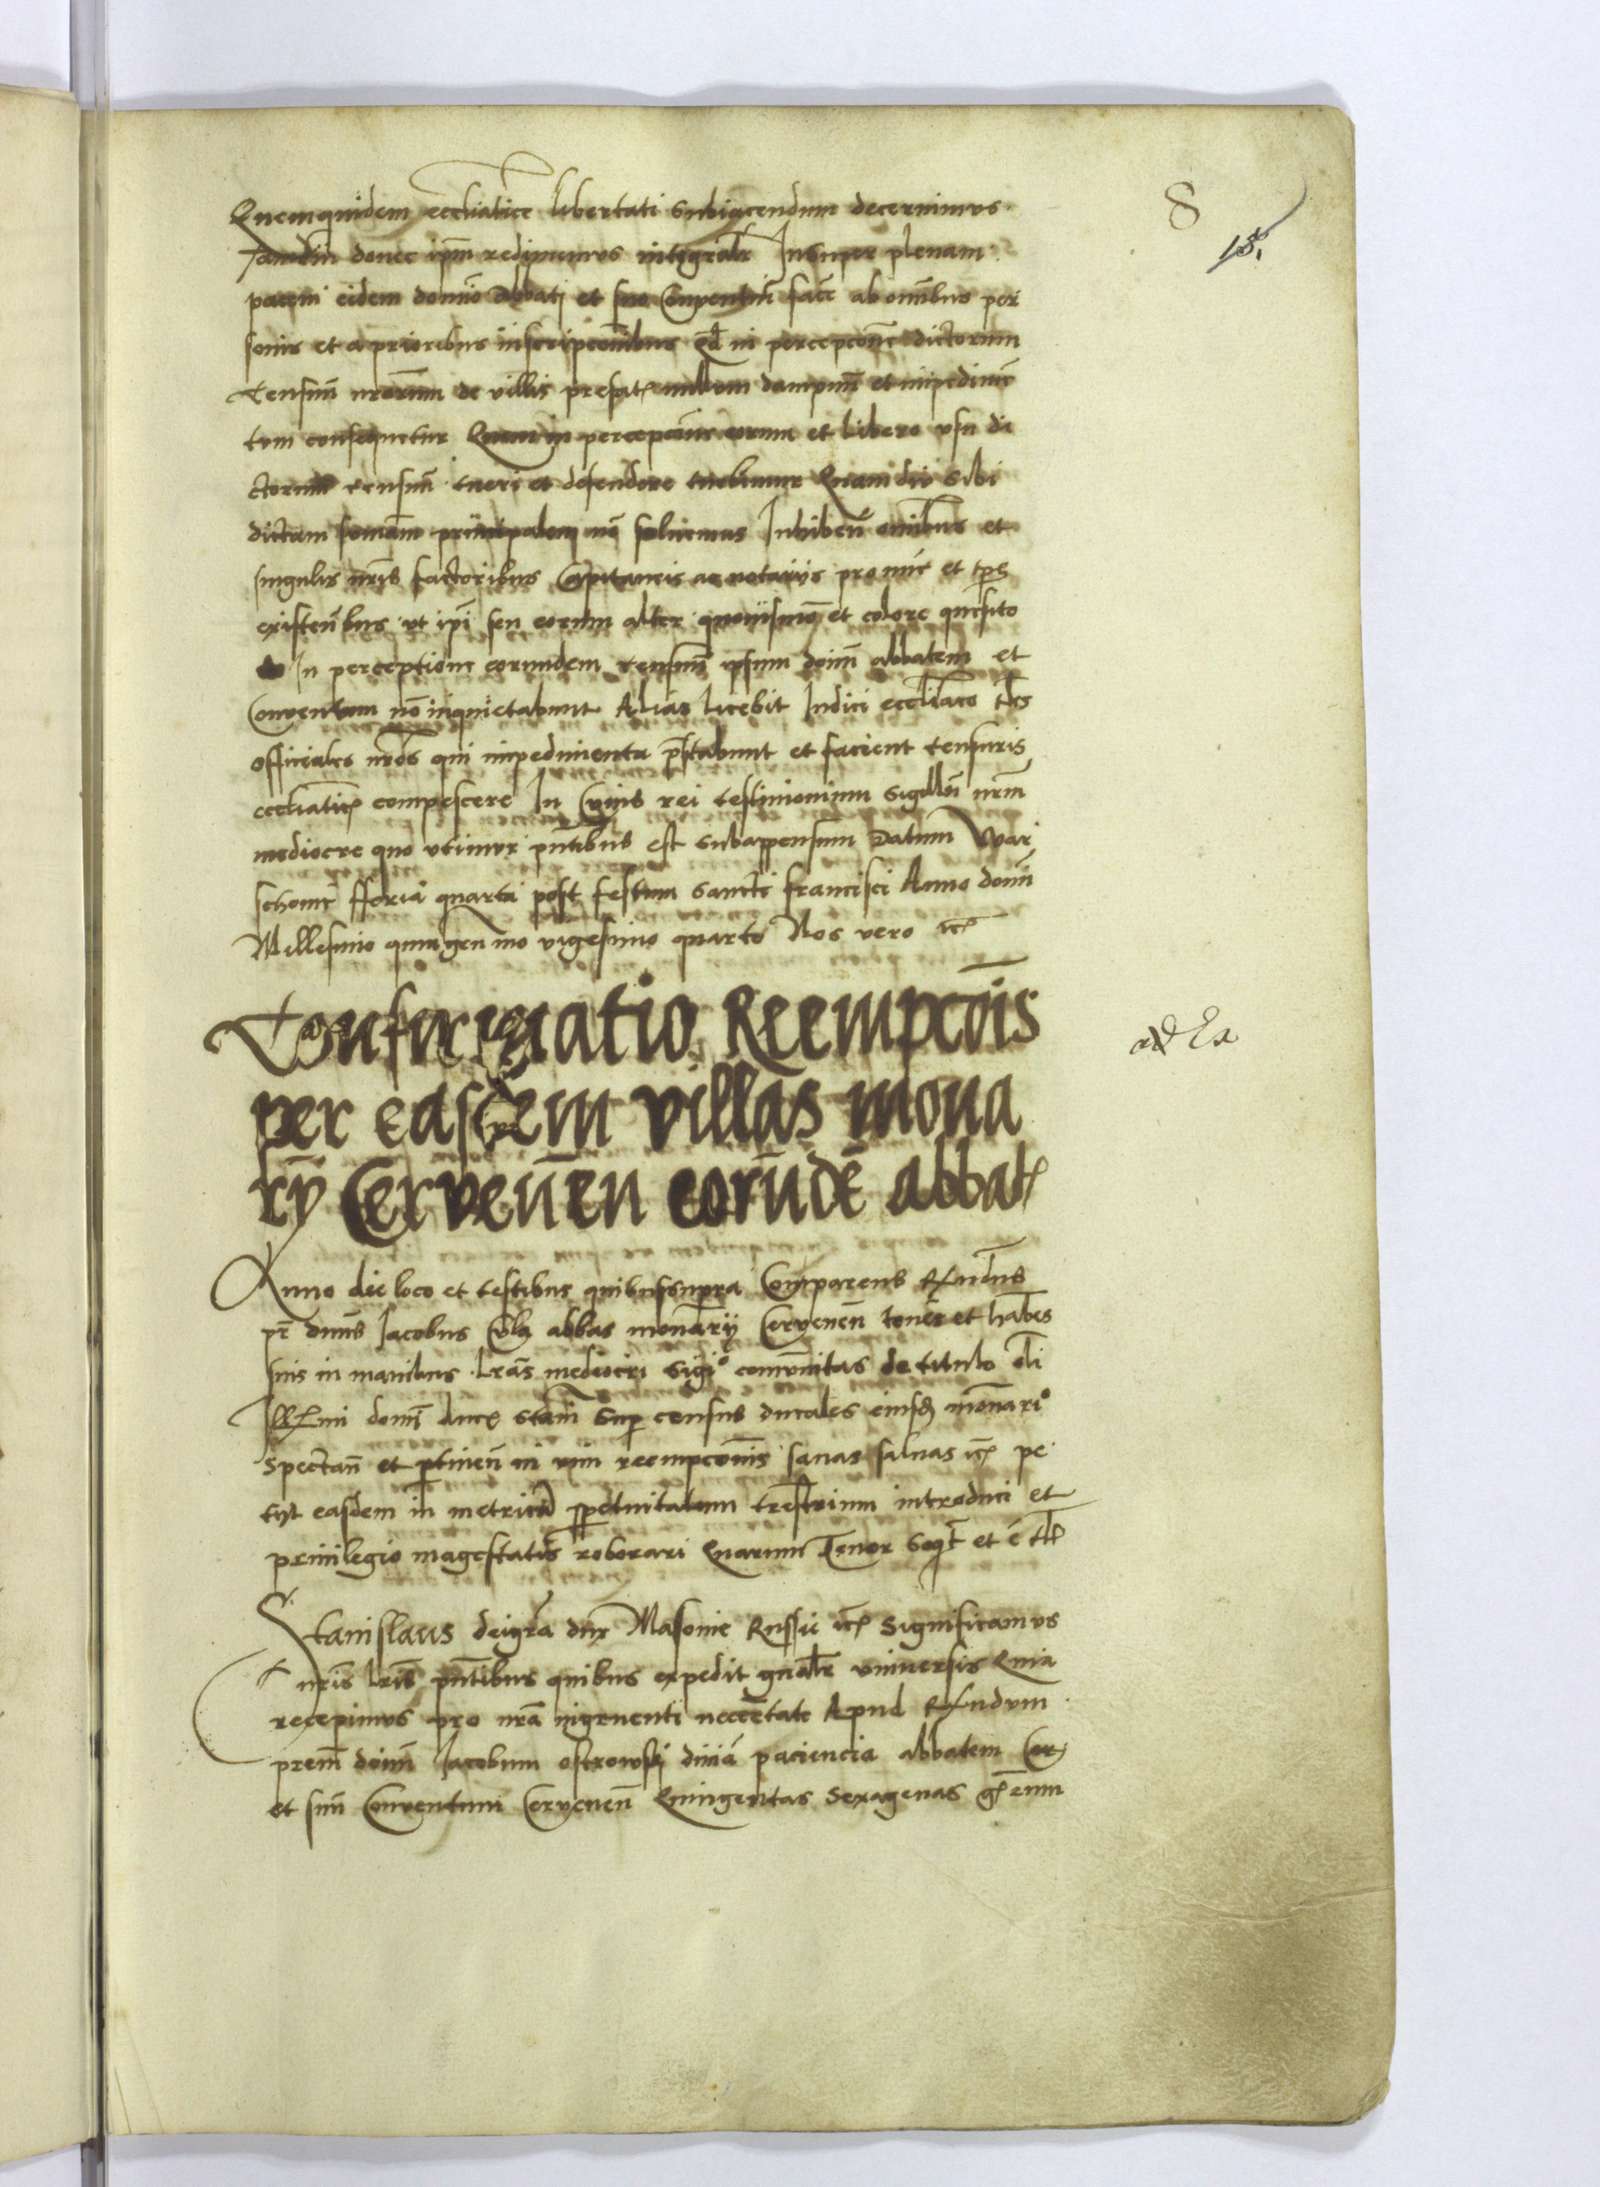 8
15.
Quemquidem eccliatice libertati Subiacendum decernimus
Tamdiu donec ipm redimemus integralr Insuper plenam
pacem eidem domino Abbati et suo Conventui face ab omibus per
sonis et a prioribus inscripcoibus in percepcone dictorum
censuu nrorum de villis prefat nullum dampnu et impedime
tum consequetur Quem in percepcione eorum et libero usu di
ctorum censuu tueri et defendere tuebimur Quamdiu Sibi
dictam somam principalem no soluemus Inhiben omibus et
singulis nris factoribus Capitaneis ac notariis pro nuc et tpe
existenbus ut ipi seu eorum alter quouismo et colore quesito
In perceptione eorundem censuu ipsum doim abbatem et
Conventum no inquietabunt Alias licebit Iudici eccliaco tles
officiales nros qui impedimenta pstabunt et facient censuris
eccliatics compescere In Cuius rei testimonium Sigillu nrm
mediocre quo utimur pntibus est Subappensum Datum War
schouie fferia quarta post festum Sancti francisci Anno domi
Millesimo quingenmo vigesimo quarto Nos vero etc
Confirmatio Reempcois
per easdem villas mona
rij Cervenen eorude abbat
ad Ex
Anno die loco et testibus quibus supra Comparens Rndus
pr dnus Iacobus abbas monarij Cervenen tenes et habes
suis in manibus lras mediocri Sigio comunitas de titulo oli
Illmi domi ducs Stani Sup census ducales eiusd monario
Spectan et ptinen in vim reempcois sanas saluas etc pe
tijt easdem in metrica ppetuitatum trestrium introduci et
priuilegio magestatis roborari Quarum Tenor Seqt et e tl
Stanislaus dei gra dux Masouie Russie etc Significamus
nris lris pntibus quibus expedit gnalr vniuersis Quia
recepimus pro nra ingruenti neccetate Apud Rndum
prem doim Iacobum ostrowski diuia paciencia abbatem Cer
et suu Conventum Cervenen Quingentas Sexagenas